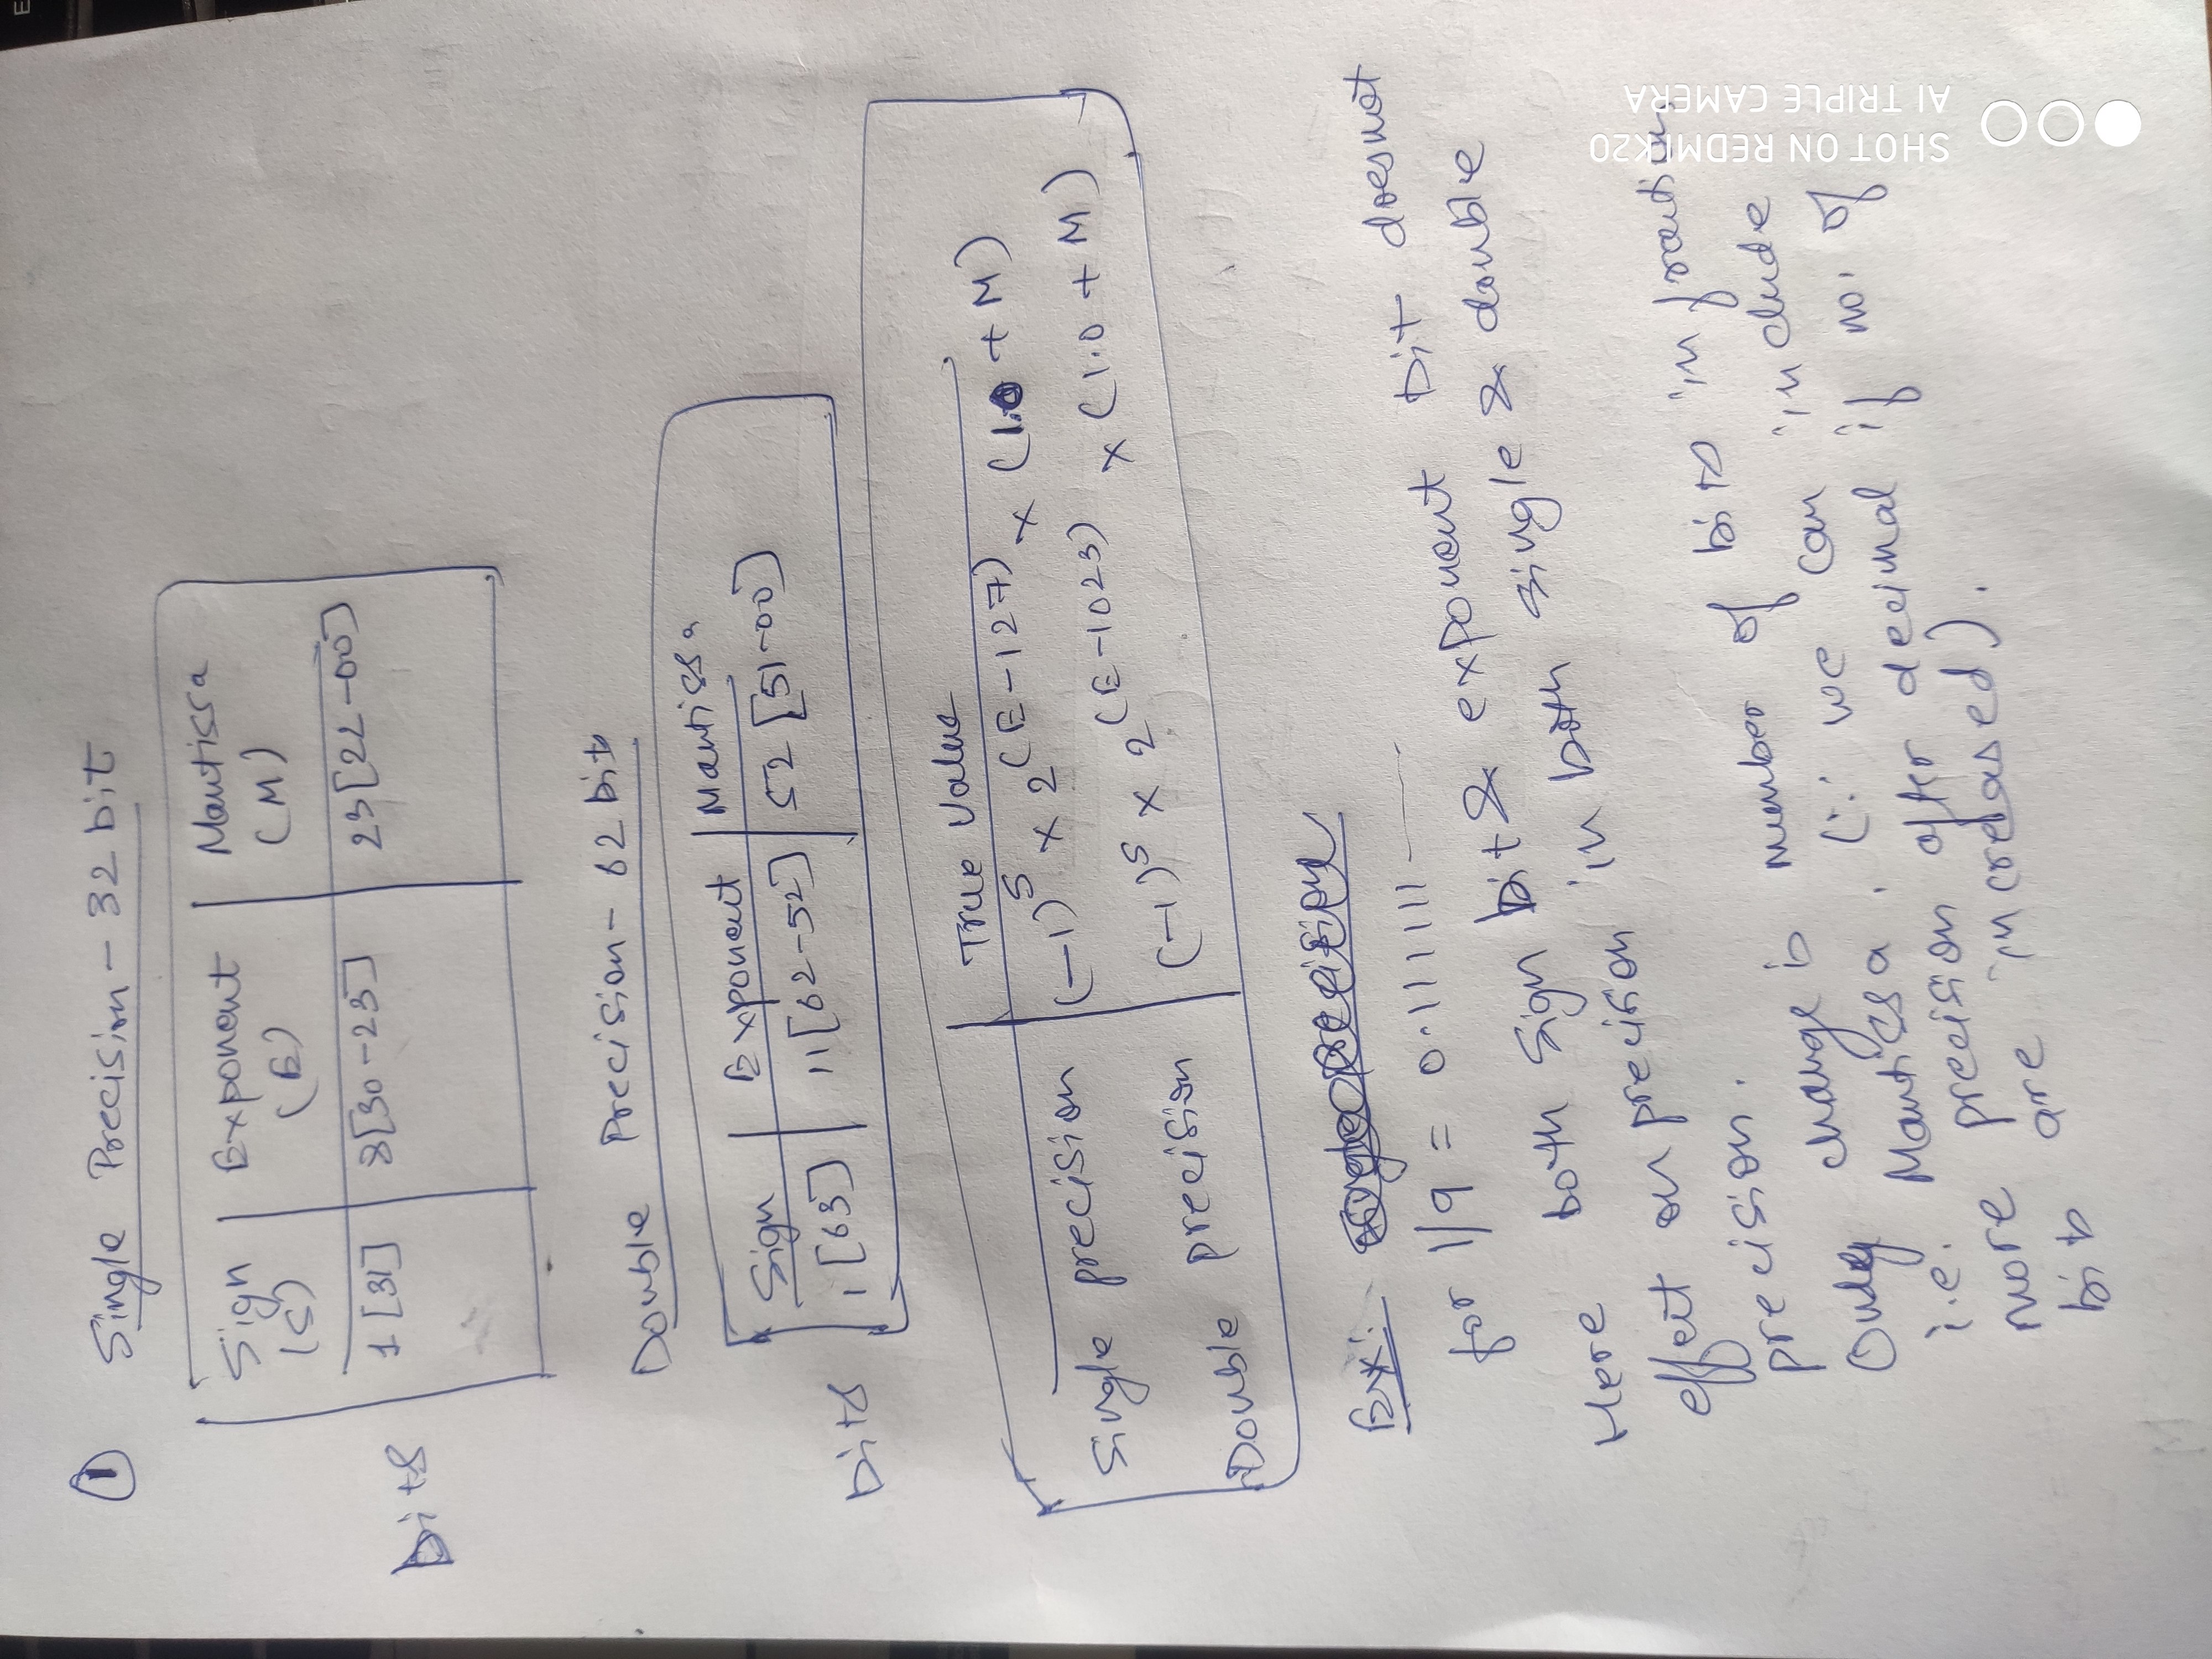 ① Single Precision - 32 bit
Sign Exponent Mantissa
(S) (E) (M)
Bits 1 [31] 8[30-23] 23[22-00]
Double Precision - 62 bit
Sign Exponent Mantissa
Bits 1 [63] 11[62-52] 52 [51-00]
True Value
Single precision (-1)^S × 2^(E-127) × (1.0 + M)
Double precision (-1)^S × 2^(E-1023) × (1.0 + M)
Ex:
for 1/9 = 0.111111
Here both Sign bit & exponent bit doesnot
effect on precision in both single & double
precision.
Only change is number of bits in fraction
i.e. Mantissa. (∵ we can include
more precision after decimal if no. of
bits are increased).
SHOT ON REDMI K20
AI TRIPLE CAMERA